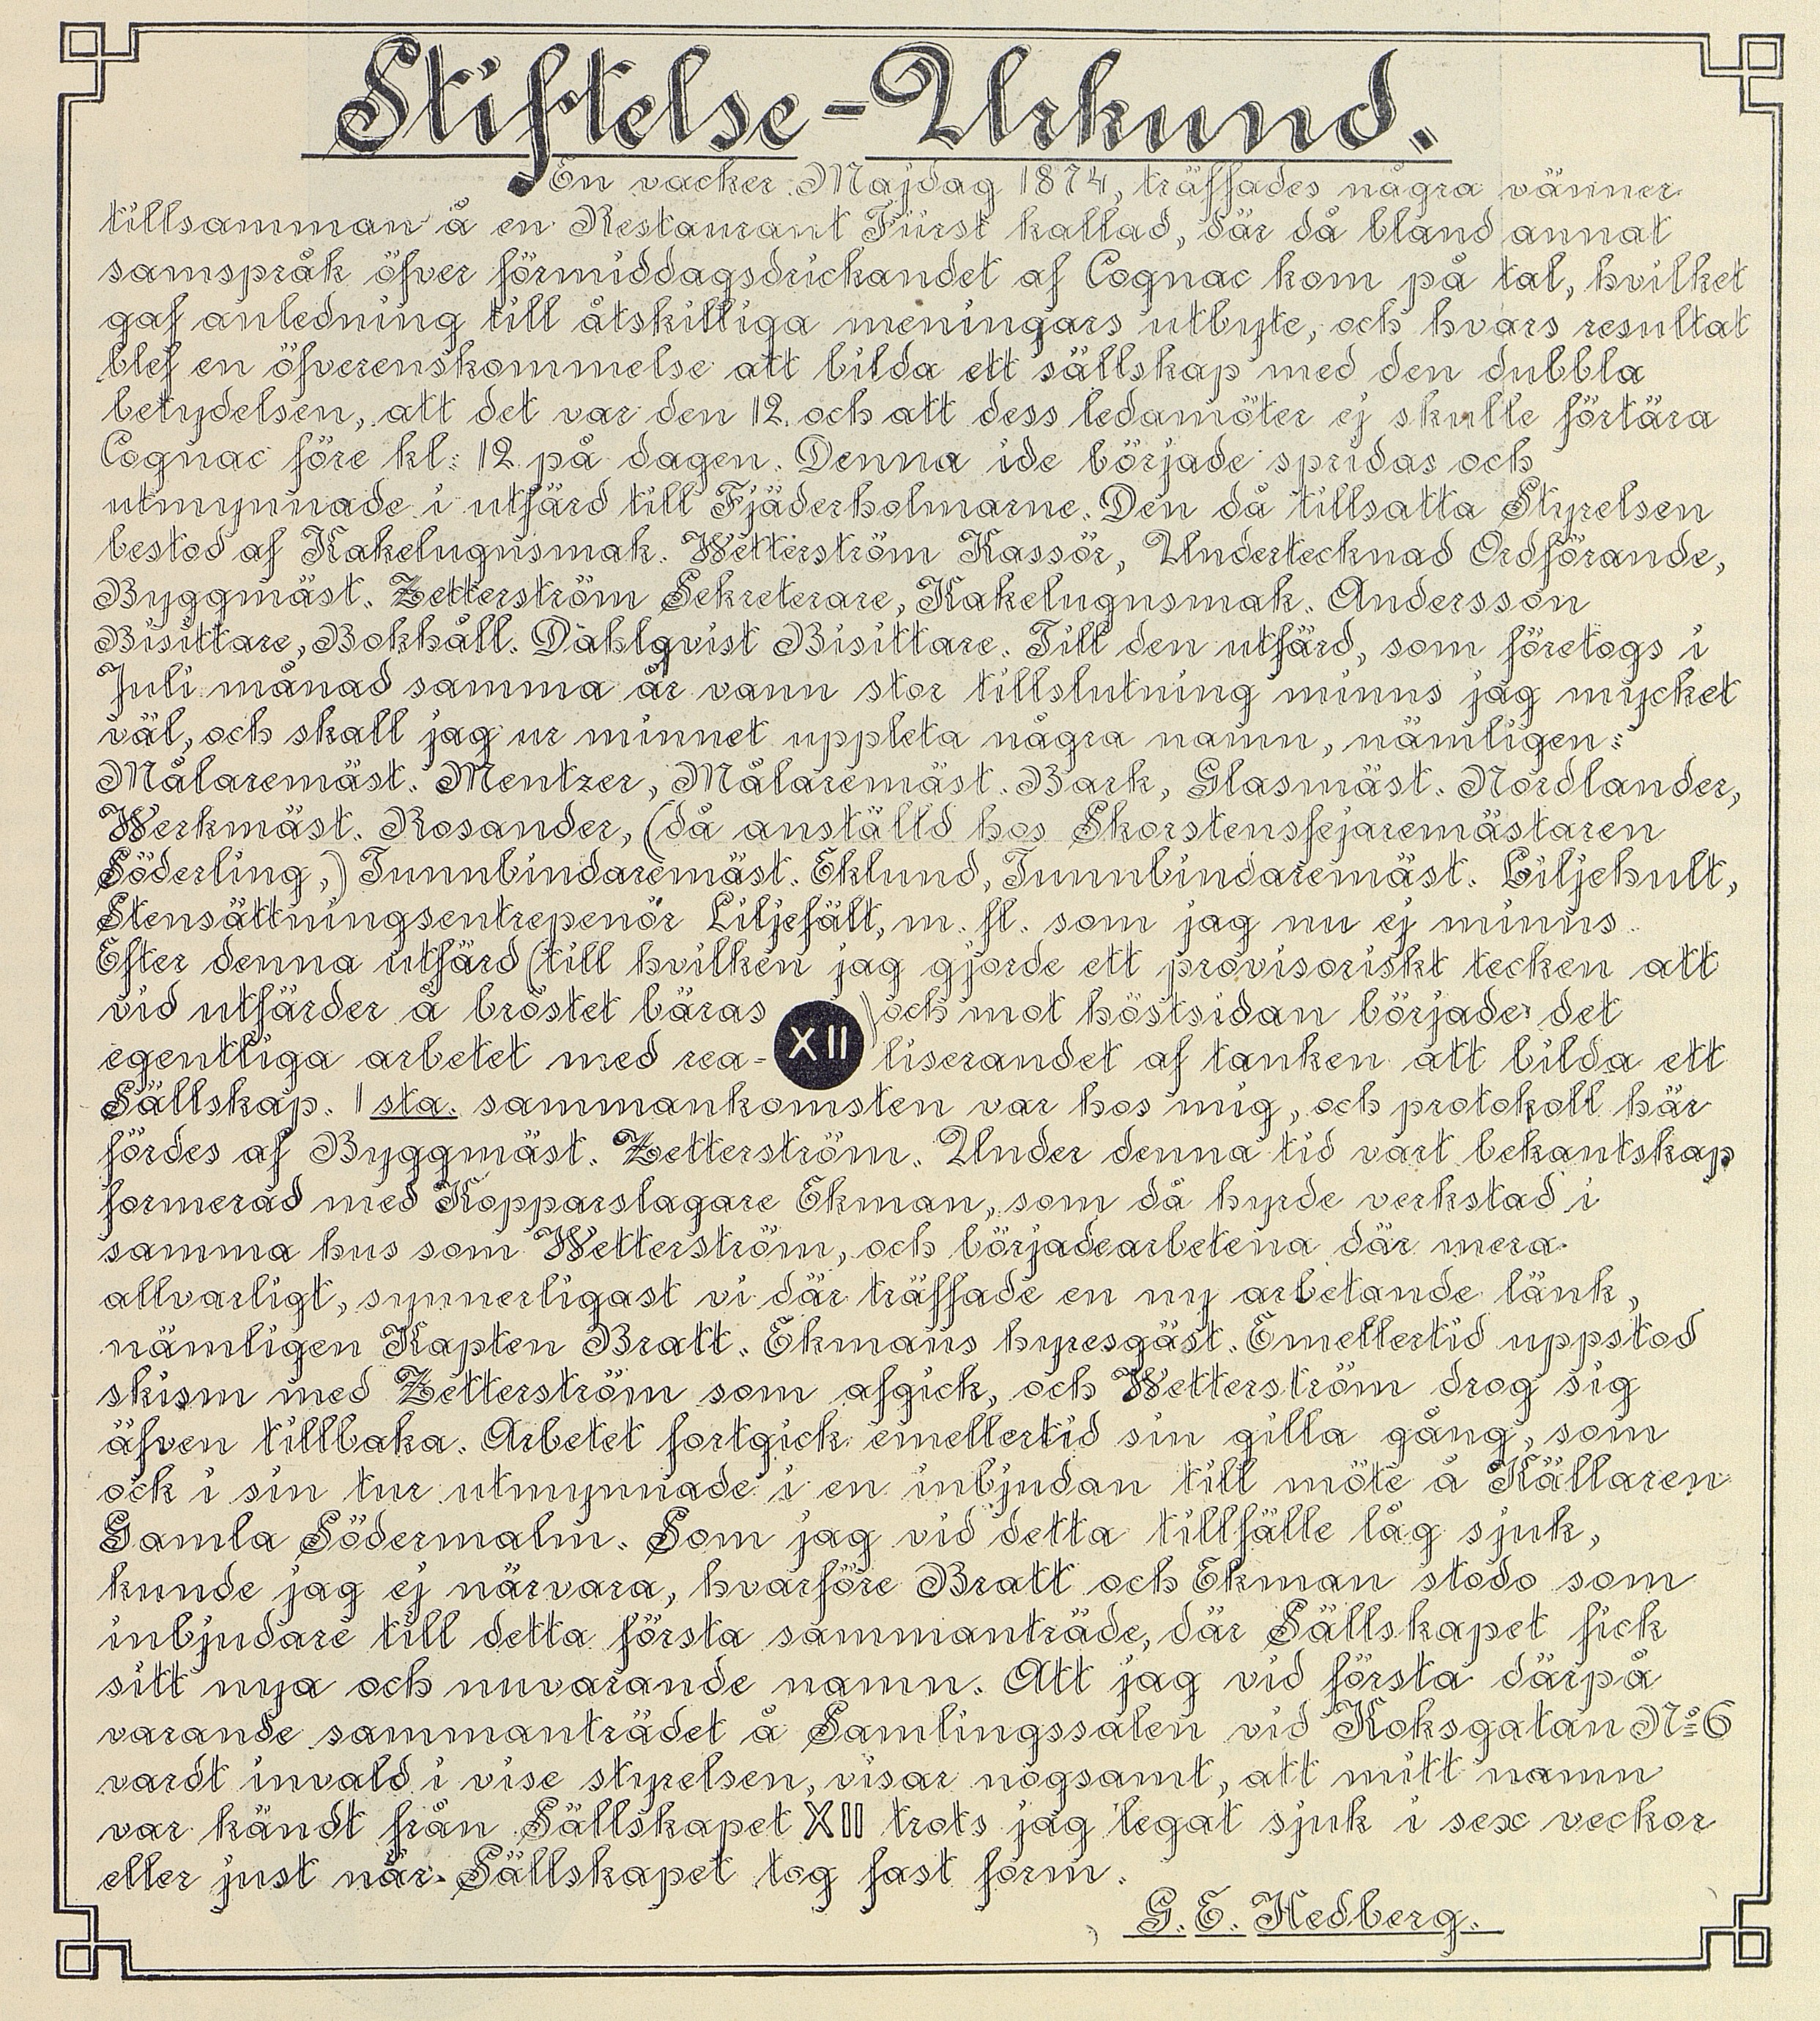 Stiftelse-Urkund.
En vacker Majdag 1874, träffades några vänner
tillsamman å en Restaurant Fürst kallad, där då bland annat
samspråk öfver förmiddagsdrickandet af Cognac kom på tal, hvilket
gaf anledning till åtskilliga meningars utbyte, och hvars resultat
blef en öfverenskommelse att bilda ett sällskap med den dubbla
betydelsen, att det var den 12. och att dess ledamöter ej skulle förtära
Cognac före kl: 12 på dagen. Denna ide började spridas och
utmynnade i utfärd till Fjäderholmarne. Den då tillsatta Styrelsen
bestod af Kakelugnsmak. Wetterström Kassör, Undertecknad Ordförande,
Byggmäst. Zetterström Sekreterare, Kakelugnsmak. Andersson
Bisittare, Bokhåll. Dahlqvist Bisittare. Till den utfärd, som företogs i
Juli månad samma år vann stor tillslutning minns jag mycket
väl, och skall jag ur minnet uppleta några namn, nämligen:
Målaremäst. Mentzer, Målaremäst. Bark, Glasmäst. Nordlander,
Werkmäst. Rosander, (då anställd hos Skorstensfejaremästaren
Söderling,) Tunnbindaremäst. Eklund, Tunnbindaremäst. Liljehult,
Stensättningsentrepenör Liljefält, m. fl. som jag nu ej minns.
Efter denna utfärd (till hvilken jag gjorde ett provisoriskt tecken att
vid utfärder å bröstet bäras XII) och mot höstsidan började det
egentliga arbetet med rea- liserandet af tanken att bilda ett
Sällskap. 1 sta. sammankomsten var hos mig, och protokoll här
fördes af Byggmäst. Zetterström. Under denna tid vart bekantskap
formerad med Kopparslagare Ekman, som då hyrde verkstad i
samma hus som Wetterström, och började arbetena där mera
allvarligt, synnerligast vi där träffade en ny arbetande länk,
nämligen Kapten Bratt. Ekmans hyresgäst. Emellertid uppstod
skism med Zetterström som afgick, och Wetterström drog sig
äfven tillbaka. Arbetet fortgick emellertid sin gilla gång, som
ock i sin tur utmynnade i en inbjudan till möte å Källaren
Gamla Södermalm. Som jag vid detta tillfälle låg sjuk,
kunde jag ej närvara, hvarföre Bratt och Ekman stodo som
inbjudare till detta första sammanträde, där Sällskapet fick
sitt nya och nuvarande namn. Att jag vid första därpå
varande sammanträdet å Samlingssalen vid Koksgatan No 6
vardt invald i vise styrelsen, visar nogsamt, att mitt namn
var kändt från Sällskapet XII trots jag legat sjuk i sex veckor
eller just når Sällskapet tog fast form.
G. E. Hedberg.